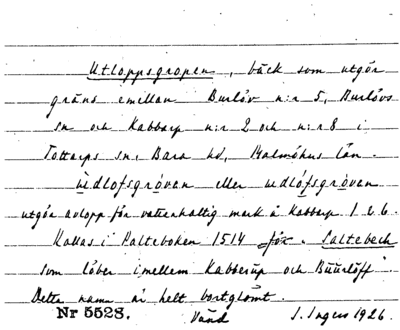 Utloppsgropen, bäck som utgör
gräns emillan Burlöv n:r 5, Burlövs
sn och Kabbarp n:r 2 och n:r 8 i
Tottarps sn, Bara hd, Malmöhus län.
Wdlofsgrovan eller wdlofsgrovan
utgör avlopp för vattenhaltig mark å Kabbarp 1 o. 6.
Kallas i Palteboken 1514 för Saltebech
som löber imellem Kabberup och Buurlöff
Detta namn är helt bortglömt.
Nr 5528. Vänd I. Ingers 1926.